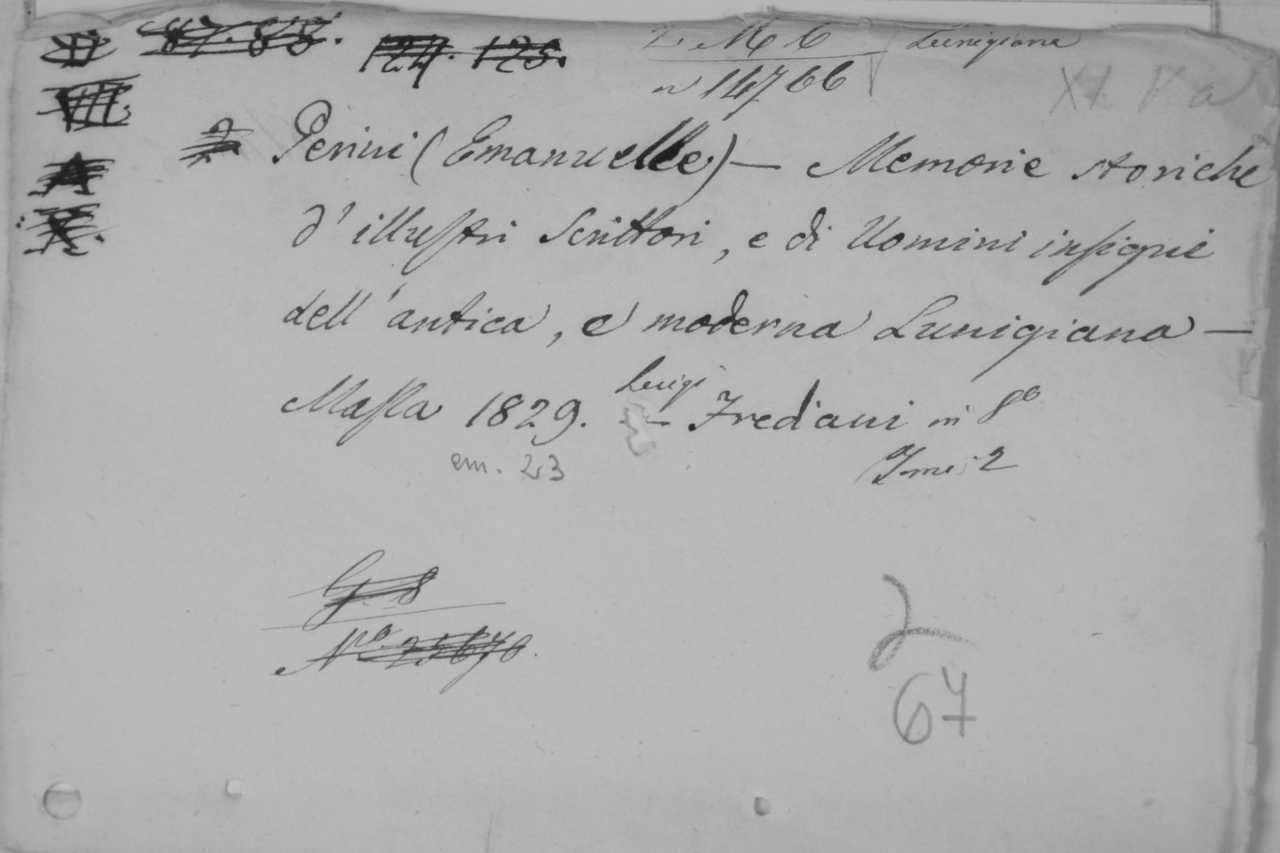 87. 88.
124. 125.
M C
Lunigiana
n 14766
VII.
A
X.
Perini (Emanuelle) — Memorie storiche
d'illustri Scrittori, e di Uomini insigni
dell'antica, e moderna Lunigiana —
Massa 1829. Luigi Frediani in 8º
Tomi 2
em. 23
G. 8
Nº 25670.
2
67